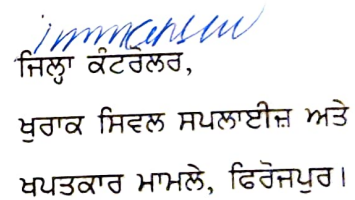 ਜਿਲ੍ਹਾ ਕੰਟਰੋਲਰ,
ਖੁਰਾਕ ਸਿਵਲ ਸਪਲਾਈਜ਼ ਅਤੇ
ਖਪਤਕਾਰ ਮਾਮਲੇ, ਫਿਰੋਜਪੁਰ।